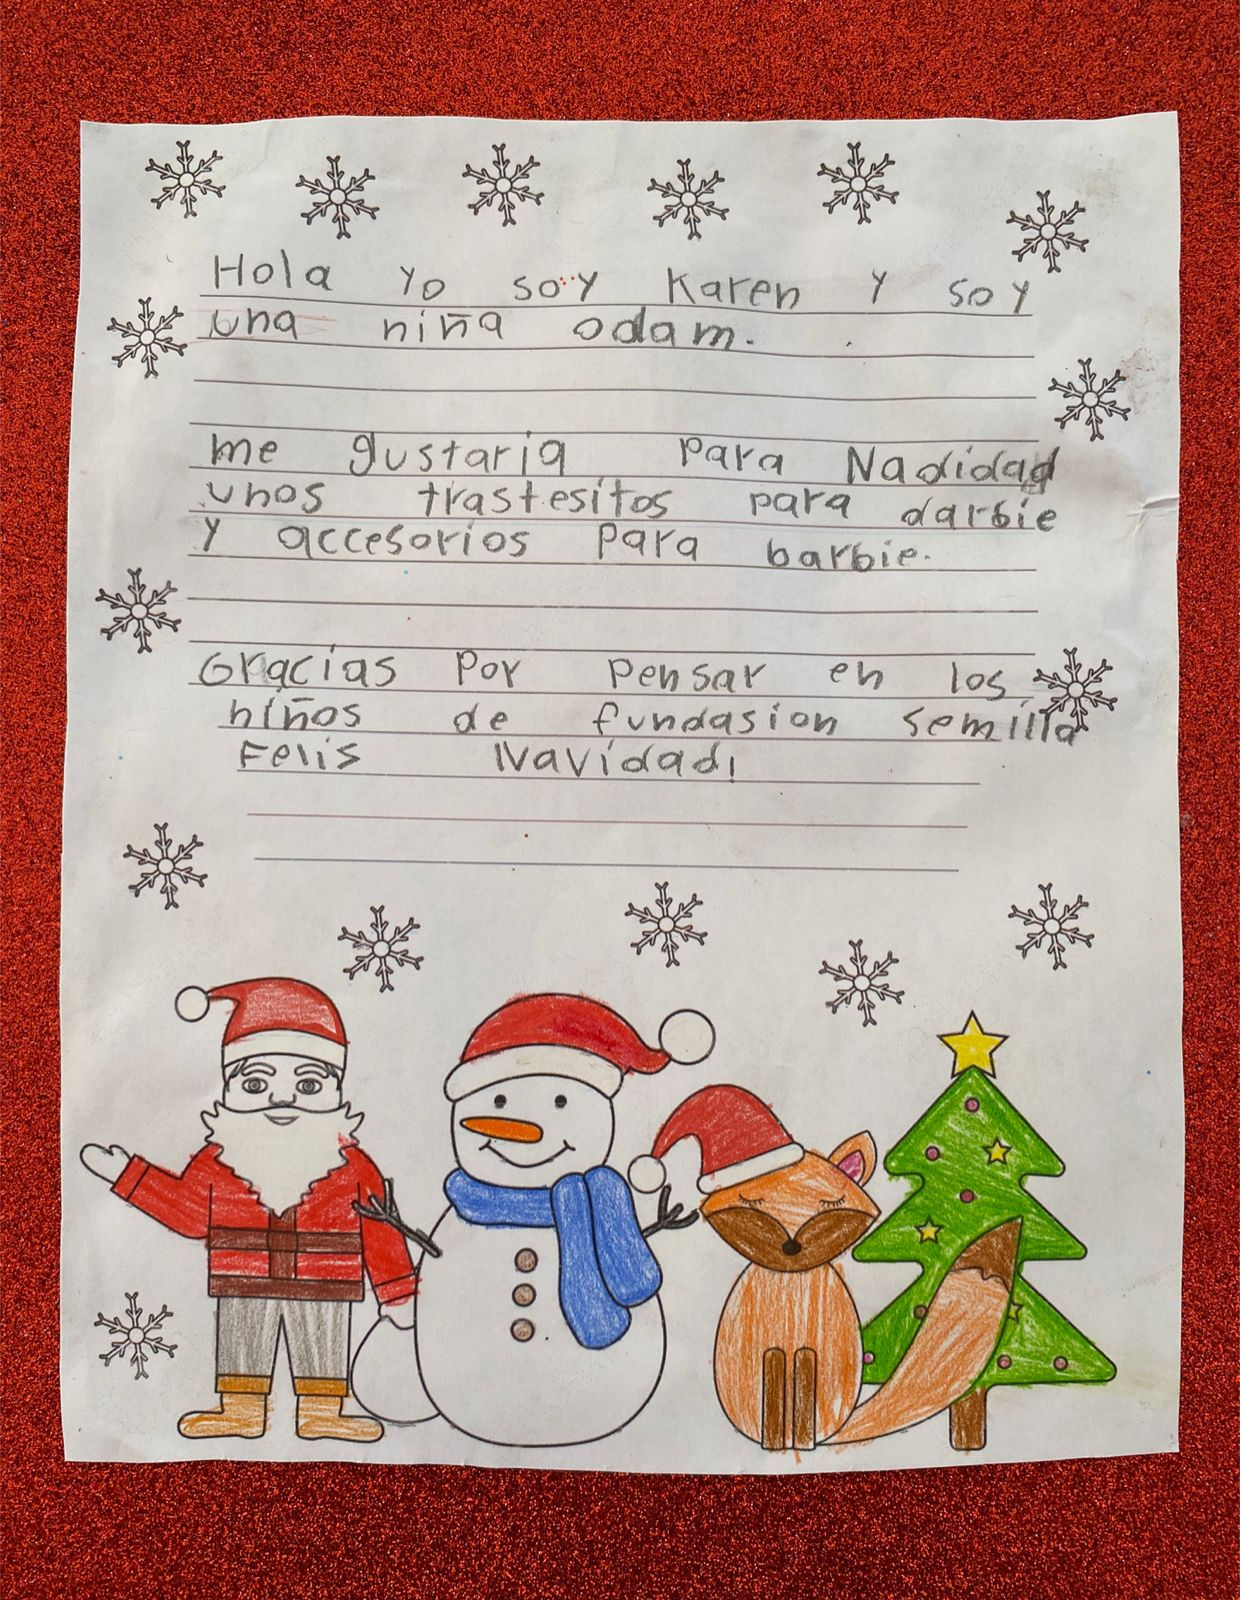 Hola yo soy Karen y soy
una niña odam.
me gustaria para Nadidad
unos trastesitos para darbie
y accesorios para barbie.
Gracias por pensar en los
niños de fundasion semilla
Felis Navidad!